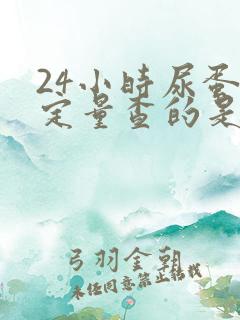 24小时尿蛋
定量查的是
弓羽金朝
未经同意禁止转载